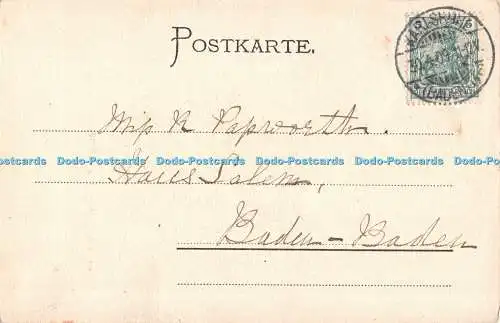 POSTKARTE.
KARLSRUHE
(BADEN)
Miss K Papworth.
Dodo-Postcards Dodo-Postcards Dodo-Postcards Dodo-Postcards Dodo-Postcards Dodo-Postcards
Haus Salem,
Baden-Baden